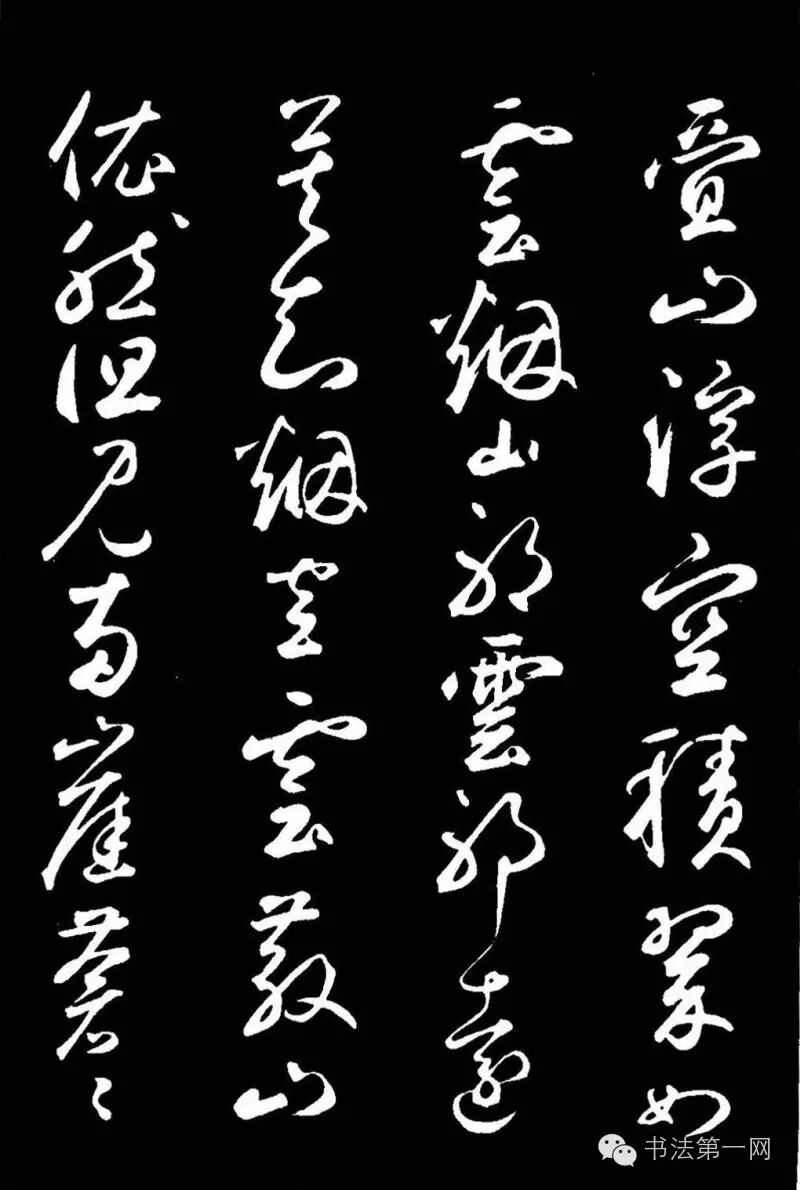 疊山浮空積翠如
雲烟山耶雲耶遠
莫知烟空雲散山
依然但見兩崖蒼〻
书法第一网